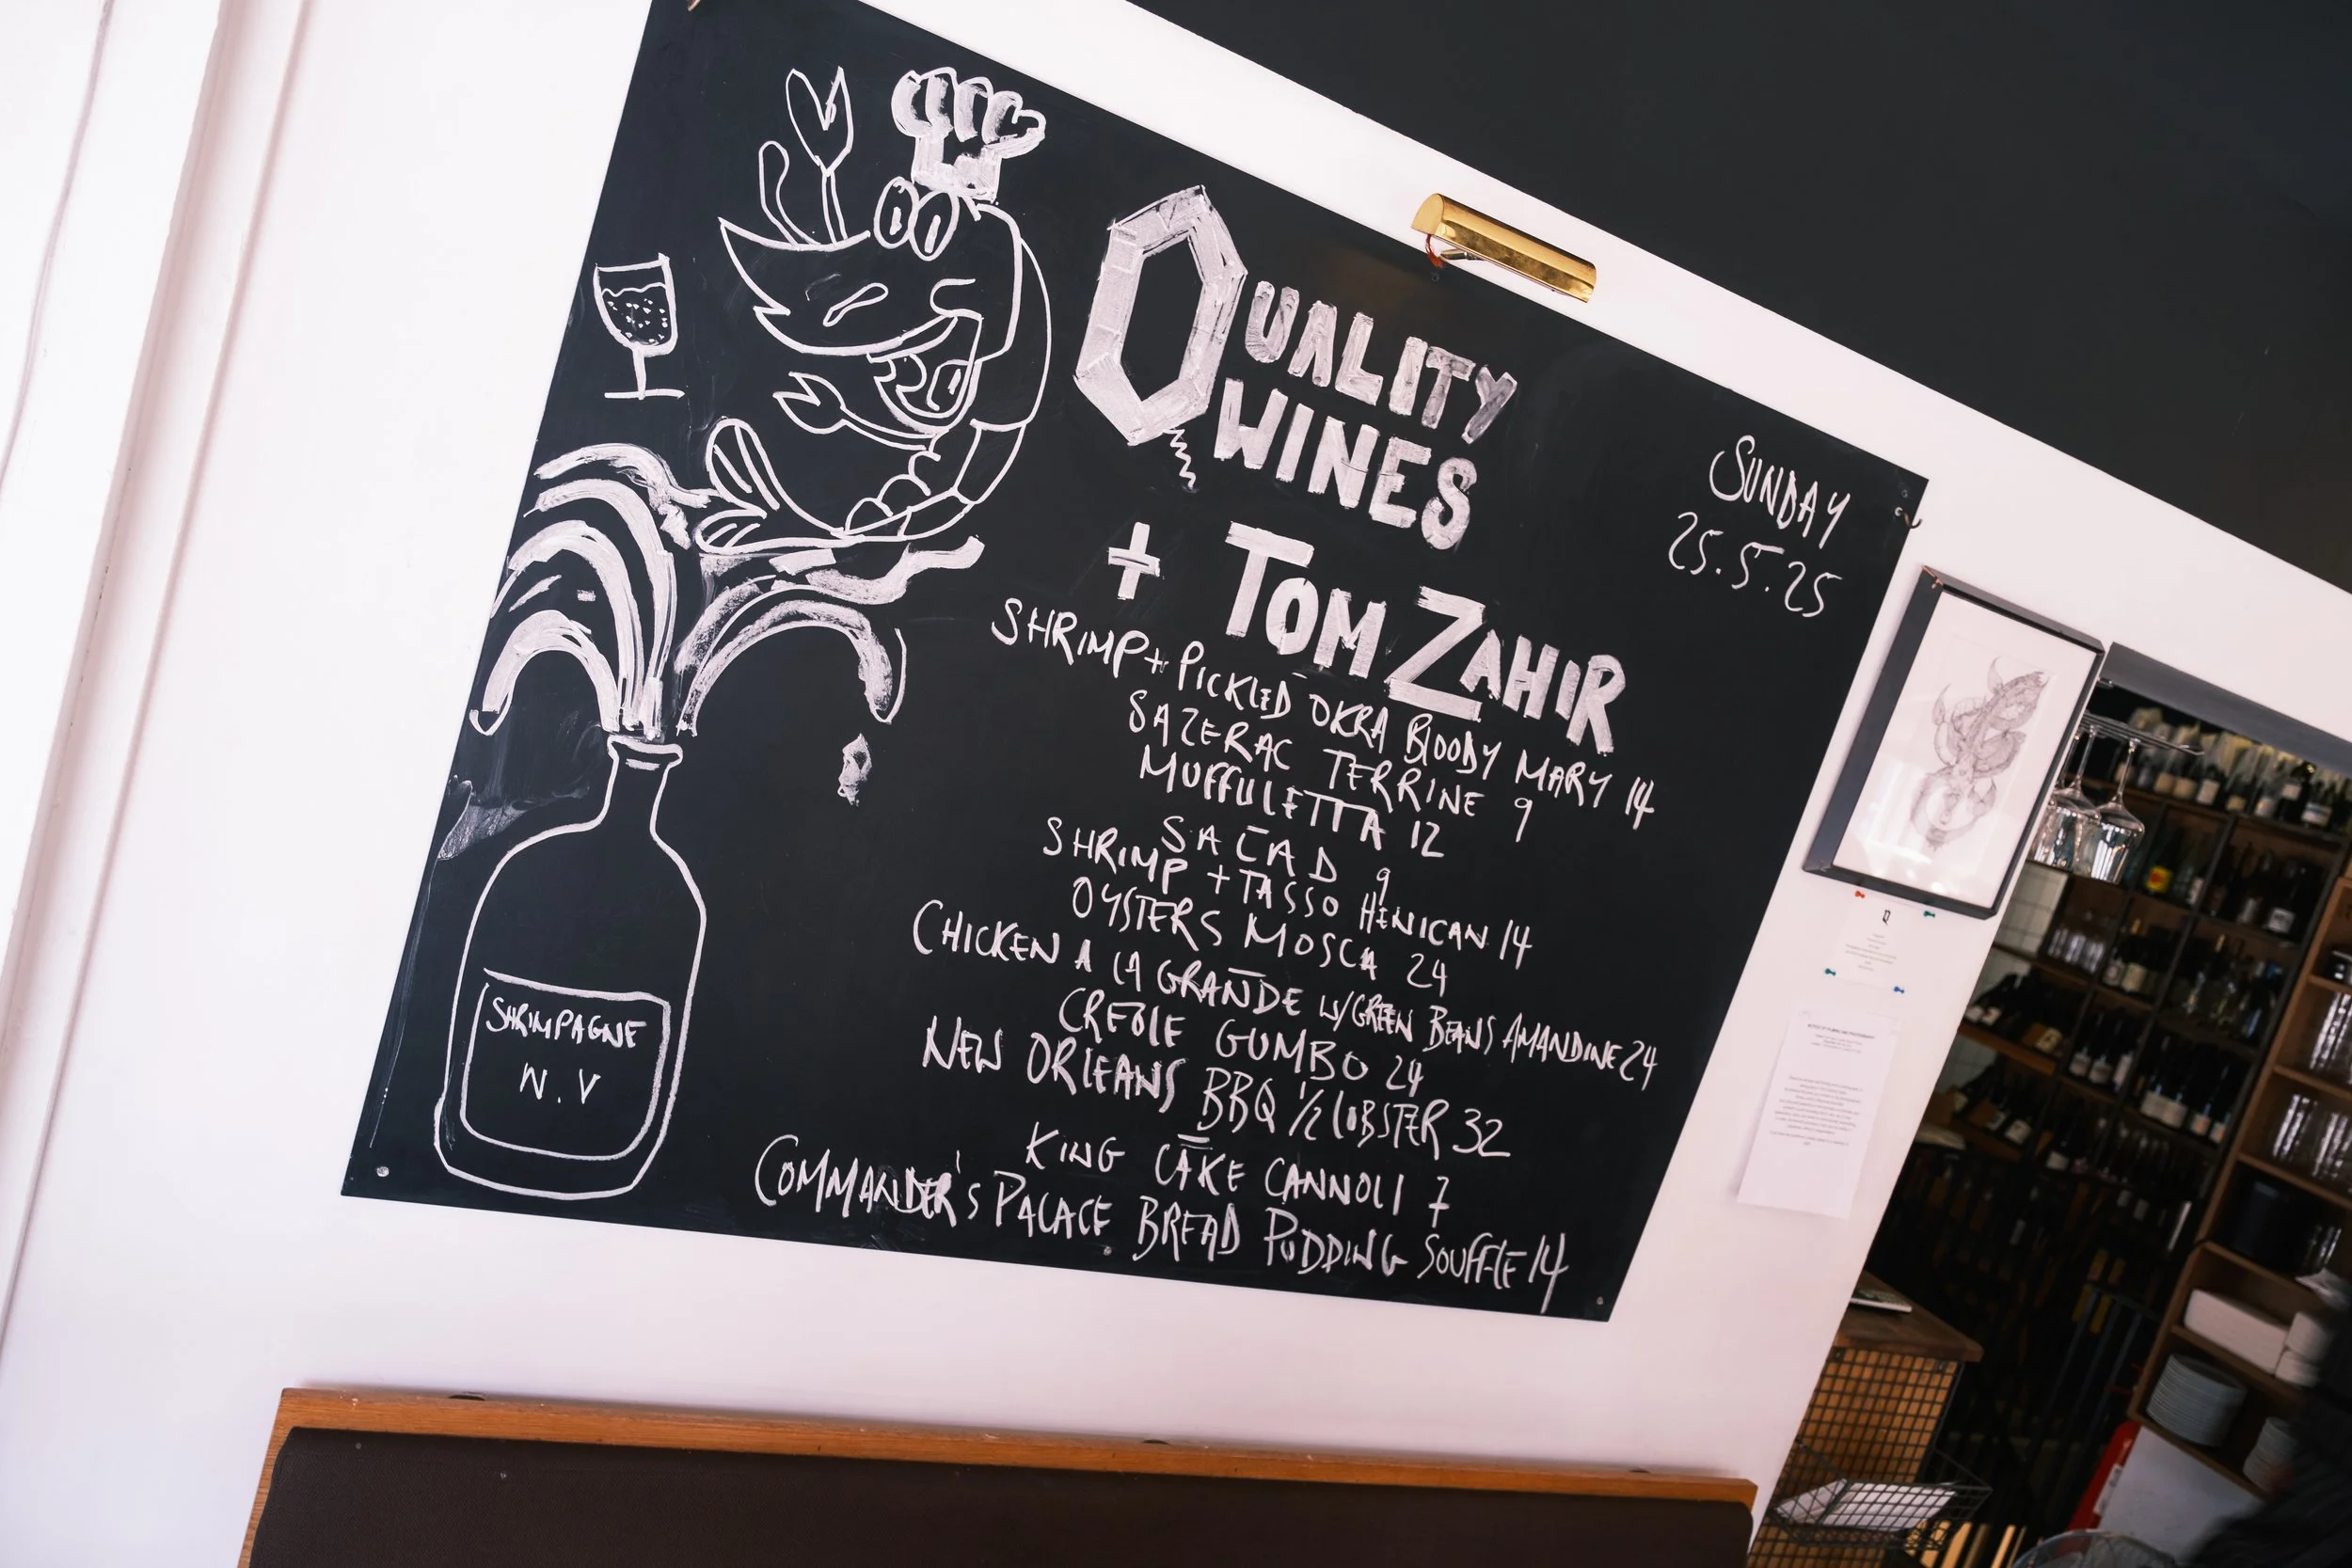 QUALITY
WINES
+ TOM ZAHIR
SUNDAY
25.5.25
SHRIMP + PICKLED OKRA BLOODY MARY 14
SAZERAC TERRINE 9
MUFFULETTA 12
SALAD 9
SHRIMP + TASSO HENICAN 14
OYSTERS MOSCA 24
CHICKEN A LA GRANDE W/GREEN BEANS AMANDINE 24
CREOLE GUMBO 24
NEW ORLEANS BBQ 1/2 LOBSTER 32
KING CAKE CANNOLI 7
COMMANDER'S PALACE BREAD PUDDING SOUFFLE 14
SHRIMPAGNE
N.V